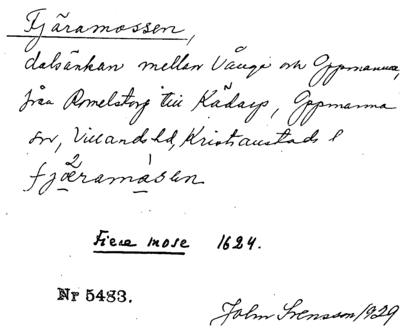 Fjäramossen,
dalsänkan mellan Vånga och Oppmanna,
från Romelstorp till Kädarp, Oppmanna
sn, Villands hd, Kristianstads l
fjæramåsen
Fiere mose 1624.
Nr 5483.
John Svensson 1929